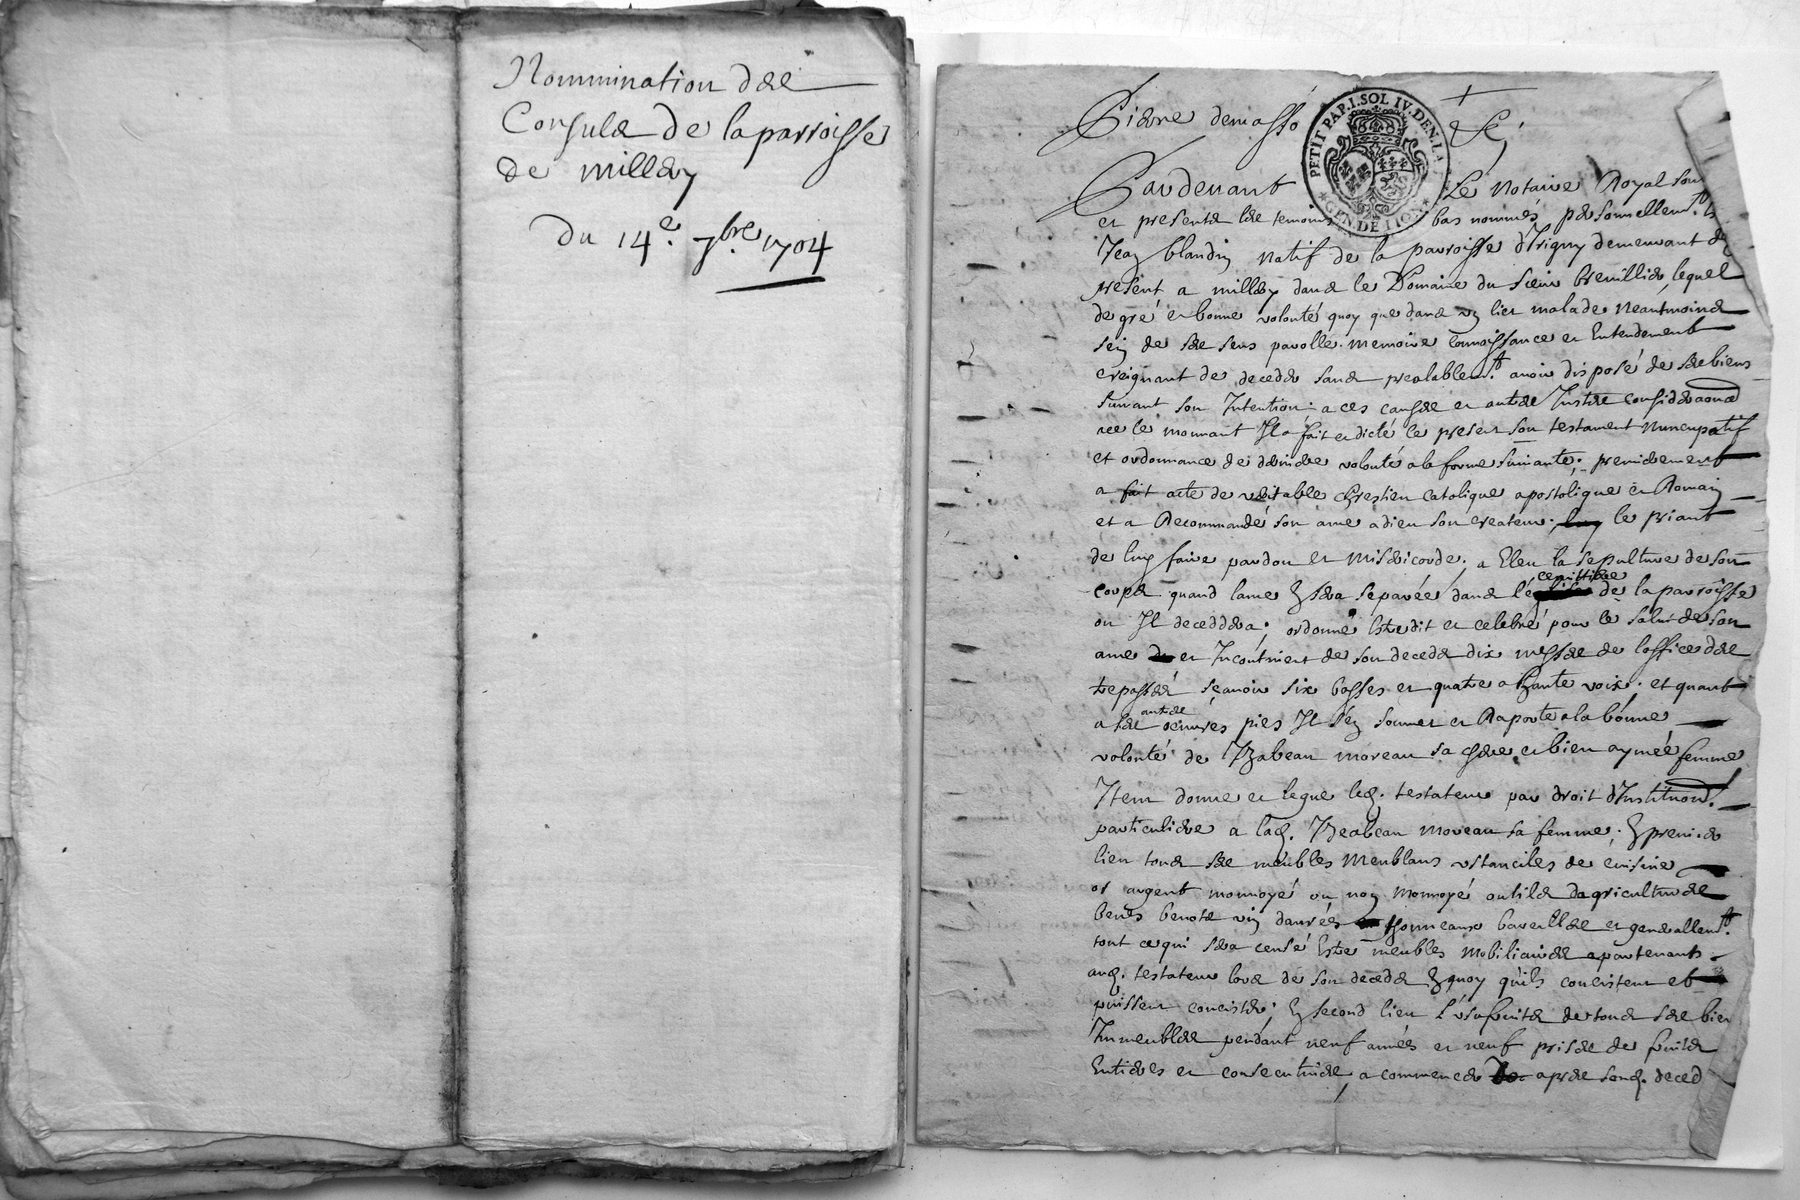 Nommination des
Consuls de la parroisse
de millery
du 14e. 7bre. 1704
PETIT PAP. 1. SOL IV. DEN. LA
GEN. DE LION
Pardevant Le Notaire Royal sou
et presents les temoins bas nommés, personnellemt.
Jean blandin natif de la parroisse d'Irigny demeurant de
present a millery dans le Domaine du sieur lequel
de gré et bonne volonté quoy que dans un lict malade neantmoins
sein de ses sens parolle memoire connoissance et Entendement
creignant de deceder sans prealablemt. avoir disposé de ses biens
suivant son Intention; a ces causes et autres Justes considerations
le mouvant Il a fait et dicté le present son testament nuncupatif
et ordonnance de derniere volonté a la forme suivante; premierement
a fait acte de veritable chrestien catolique apostolique et Romain
et a Recommandé son ame a dieu son createur; luy le priant
de luy faire pardon et misericorde, a Eleu la sepulture de son
corps quand lame En sera separée dans le cemittiere de la parroisse
ou Il deceddera; ordonne Estre dit et celebré pour le salut de son
ame et Incontinent de son deceds dix messes de loffice des
trepassés sçavoir six basses et quatre a haute voix; et quant
a ses autres oeuvres pies Il s'en soumet et Raporte a la bonne
volonté de Yzabeau moreau sa chere et bien aymée femme
Item donne et legue led. testateur par droit d'Institution
particuliere a lad. Yzabeau moreau sa femme; En premier
lieu tous ses meubles meublans ustanciles de cuisine
or argent monnoyé ou non monnoyé outils dagriculture
benes benots vin danrées thonneaux bareilles et generallemt.
tout ce qui sera censé Estre meubles mobiliaires apartenants
aud. testateur lors de son deceds En quoy qu'ils concistent et
puissent concister; En second lieu l'usufruits de tous ses bien
Immeubles pendant neuf années et neuf prises de fruits
Entieres et consecutives, a commencer apres sond. deced